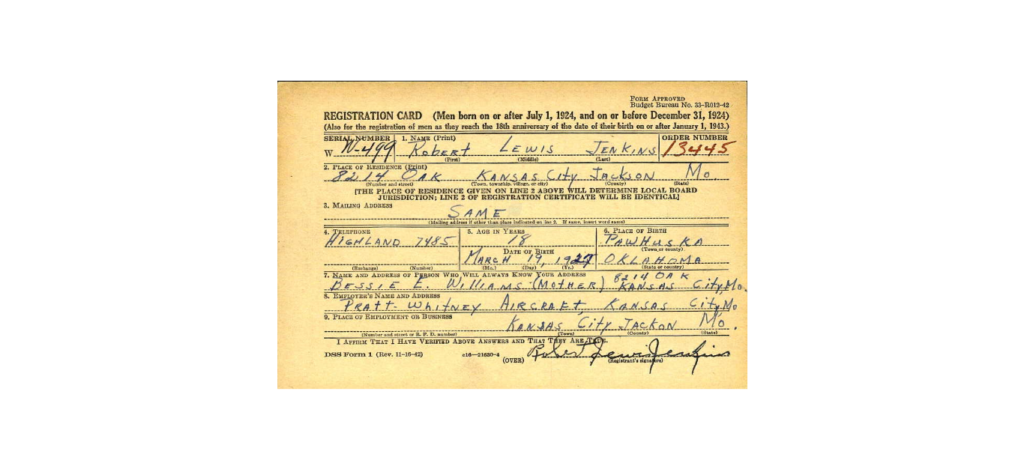 FORM APPROVED
Budget Bureau No. 33-R012-42
REGISTRATION CARD (Men born on or after July 1, 1924, and on or before December 31, 1924)
(Also for the registration of men as they reach the 18th anniversary of the date of their birth on or after January 1, 1943.)
SERIAL NUMBER 1. NAME (Print) ORDER NUMBER
W N-499 ROBERT LEWIS JENKINS 13445
(First) (Middle) (Last)
2. PLACE OF RESIDENCE (Print)
8214 OAK KANSAS CITY JACKSON Mo.
(Number and street) (Town, township, village, or city) (County) (State)
[THE PLACE OF RESIDENCE GIVEN ON LINE 2 ABOVE WILL DETERMINE LOCAL BOARD
JURISDICTION; LINE 2 OF REGISTRATION CERTIFICATE WILL BE IDENTICAL]
3. MAILING ADDRESS
SAME
(Mailing address if other than place indicated on line 2. If same, insert word same)
4. TELEPHONE 5. AGE IN YEARS 6. PLACE OF BIRTH
HIGHLAND 7485 18 PAWHUSKA
(Town or county)
DATE OF BIRTH
MARCH 19, OKLAHOMA
(Exchange) (Number) (Mo.) (Day) (Yr.) (State or country)
7. NAME AND ADDRESS OF PERSON WHO WILL ALWAYS KNOW YOUR ADDRESS 8214 OAK
BESSIE E. WILLIAMS (MOTHER) KANSAS CITY, Mo.
8. EMPLOYER'S NAME AND ADDRESS
PRATT-WHITNEY AIRCRAFT, KANSAS CITY, Mo
9. PLACE OF EMPLOYMENT OR BUSINESS
KANSAS CITY JACKON Mo.
(Number and street or R. F. D. number) (Town) (County) (State)
I AFFIRM THAT I HAVE VERIFIED ABOVE ANSWERS AND THAT THEY ARE TRUE.
DSS Form 1 (Rev. 11-16-42) (OVER) Robert Lewis Jenkins
(Registrant's signature)